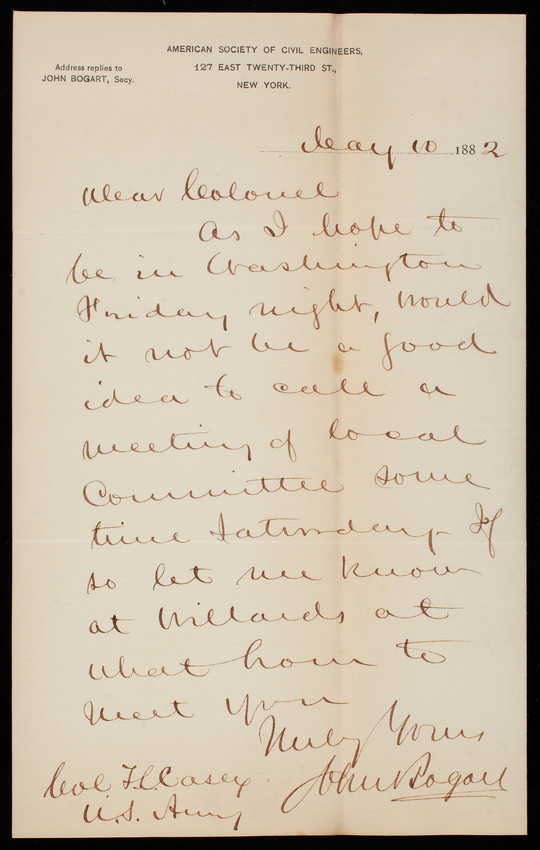 AMERICAN SOCIETY OF CIVIL ENGINEERS,
127 EAST TWENTY-THIRD ST.,
NEW YORK.
Address replies to
JOHN BOGART, Secy.
May 10 1882
Dear Colonel
As I hope to
be in Washington
Friday night, would
it not be a good
idea to call a
meeting of local
Committee some
time Saturday. If
so let me know
at Willards at
what hour to
meet you
Truly Yours
John Bogart
Col. T.L. Casey
U.S. Army